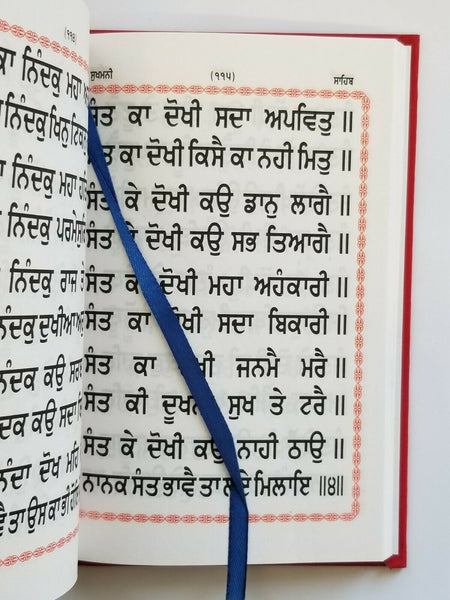 (੧੧੪)
ਨਿੰਦਕੁ ਮਹਾ
ਨਿੰਦਕੁ ਖਿਨੁ
ਨਿੰਦਕੁ ਮਹਾ
ਨਿੰਦਕੁ
ਨਿੰਦਕੁ ਰਾਜ ਤੇ
ਦੁਖੀਆ
ਕਉ
ਕਉ ਸਦਾ
ਦੋਖ ਮਹਿ
ਤਾ ਉਸ ਕਾ ਭੀ
ਸੁਖਮਨੀ (੧੧੫) ਸਾਹਿਬ
ਸੰਤ ਕਾ ਦੋਖੀ ਸਦਾ ਅਪਵਿਤੁ ॥
ਸੰਤ ਕਾ ਦੋਖੀ ਕਿਸੈ ਕਾ ਨਹੀ ਮਿਤੁ ॥
ਸੰਤ ਕੇ ਦੋਖੀ ਕਉ ਡਾਨੁ ਲਾਗੈ ॥
ਸੰਤ ਕੇ ਦੋਖੀ ਕਉ ਸਭ ਤਿਆਗੈ ॥
ਸੰਤ ਕਾ ਦੋਖੀ ਮਹਾ ਅਹੰਕਾਰੀ ॥
ਸੰਤ ਕਾ ਦੋਖੀ ਸਦਾ ਬਿਕਾਰੀ ॥
ਸੰਤ ਕਾ ਦੋਖੀ ਜਨਮੈ ਮਰੈ ॥
ਸੰਤ ਕੀ ਦੂਖਨਾ ਸੁਖ ਤੇ ਟਰੈ ॥
ਸੰਤ ਕੇ ਦੋਖੀ ਕਉ ਨਾਹੀ ਠਾਉ ॥
ਨਾਨਕ ਸੰਤ ਭਾਵੈ ਤਾ ਲਏ ਮਿਲਾਇ ॥੪॥